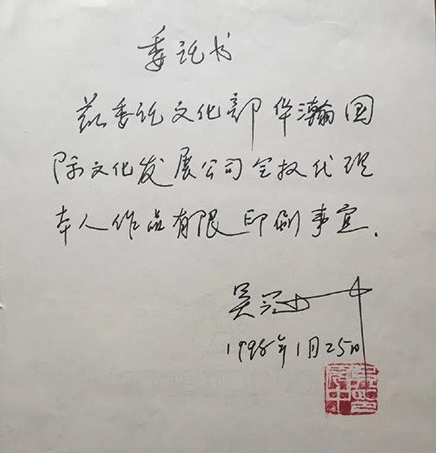 委托书
兹委托文化部华瀚国
际文化发展公司全权代理
本人作品有限印刷事宜.
吴冠中
1998年1月25日
吴冠中印